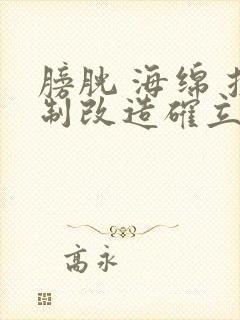 膀胱 海绵
制改造确立
高永